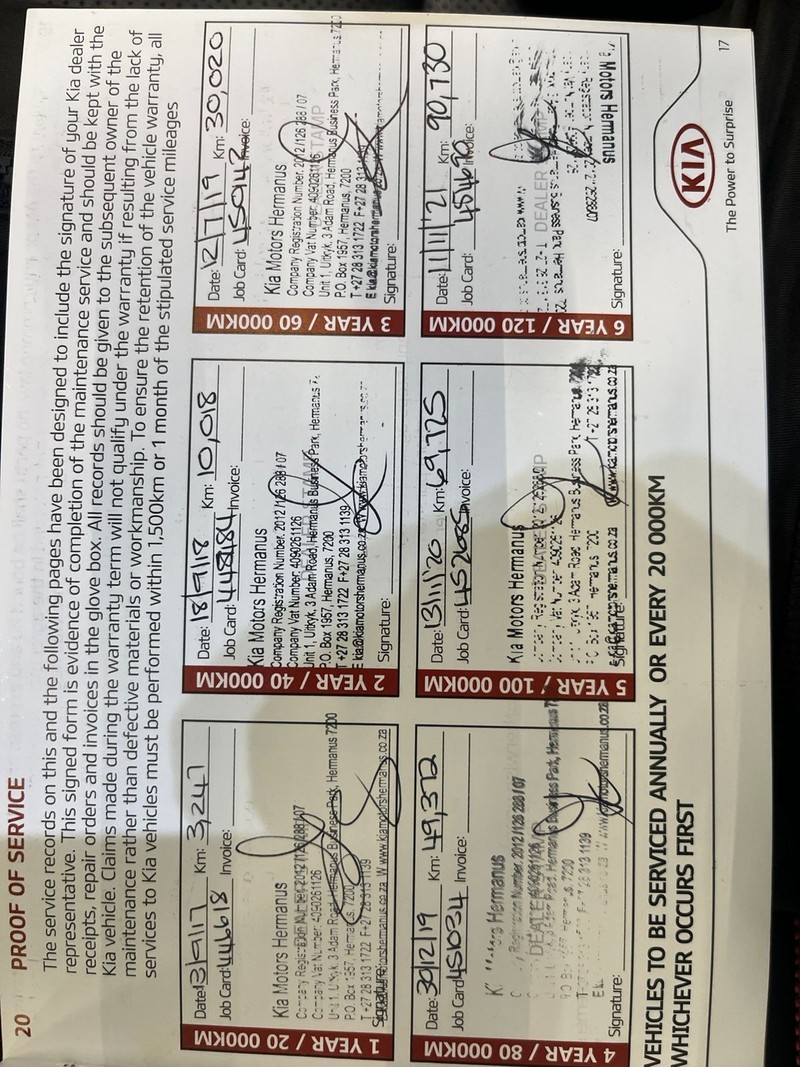 20 PROOF OF SERVICE
The service records on this and the following pages have been designed to include the signature of your Kia dealer
representative. This signed form is evidence of completion of the maintenance service and should be kept with the
receipts, repair orders and invoices in the glove box. All records should be given to the subsequent owner of the
Kia vehicle. Claims made during the warranty term will not qualify under the warranty if resulting from the lack of
maintenance rather than defective materials or workmanship. To ensure the retention of the vehicle warranty, all
services to Kia vehicles must be performed within 1,500km or 1 month of the stipulated service mileages
1 YEAR / 20 000KM
Date: 13/9/17 Km: 3,247
Job Card: 446618 Invoice:
Kia Motors Hermanus
Company Registration Number. 2012/126 288 / 07
Company Vat Number: 4090261126
Unit 1, Uitkyk, 3 Adam Road, Hermanus Business Park, Hermanus 7200
P.O. Box 1957, Hermanus, 7200
T +27 28 313 1722 F+27 28 313 1139
W www.kiamotorshermanus.co.za
Signature:
2 YEAR / 40 000KM
Date: 18/9/18 Km: 10,018
Job Card: 448484 Invoice:
Kia Motors Hermanus
Company Registration Number. 2012 /126 288 / 07
Company Vat Number: 4090261126
Unit 1, Uitkyk, 3 Adam Road, Hermanus Business Park, Hermanus
P.O. Box 1957, Hermanus, 7200
T +27 28 313 1722 F+27 28 313 1139
E kia@kiamotorshermanus.co.za W www.kiamotorshermanus.co.za
Signature:
3 YEAR / 60 000KM
Date: 12/7/19 Km: 30,020
Job Card: 450142 Invoice:
Kia Motors Hermanus
Company Registration Number. 2012 /126 288 / 07
Company Vat Number: 4090261126
Unit 1, Uitkyk, 3 Adam Road, Hermanus Business Park, Hermanus 7200
P.O. Box 1957, Hermanus, 7200
T +27 28 313 1722 F+27 28 313
E kia@kiamotorshermanus
Signature:
4 YEAR / 80 000KM
Date: 30/12/19 Km: 49,372
Job Card: 451034 Invoice:
Hermanus
Registration Number. 2012 /126 288 / 07
DEALER
Road, Hermanus Business Park, Hermanus
Hermanus, 7200
F+27 28 313 1139
Signature:
5 YEAR / 100 000KM
Date: 13/11/20 Km: 69,725
Job Card: 452685 Invoice:
Kia Motors Hermanus
3 Adam Road Hermanus Business Park, Hermanus
W www.kiamotorshermanus.co.za
Signature:
6 YEAR / 120 000KM
Date: 11/11/21 Km: 90,730
Job Card: 454690 Invoice:
DEALER
Motors Hermanus
Signature:
VEHICLES TO BE SERVICED ANNUALLY OR EVERY 20 000KM
WHICHEVER OCCURS FIRST
KIA
The Power to Surprise
17